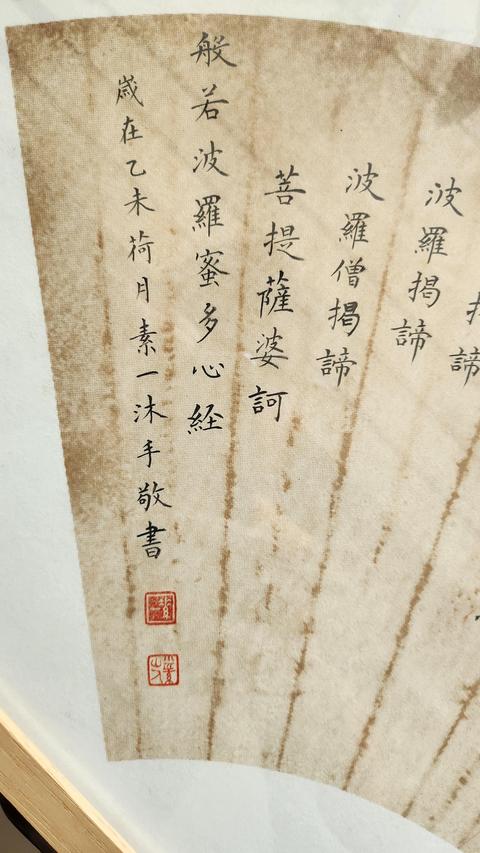 波羅揭諦
波羅僧揭諦
菩提薩婆訶
般若波羅蜜多心経
歳在乙未荷月素一沐手敬書